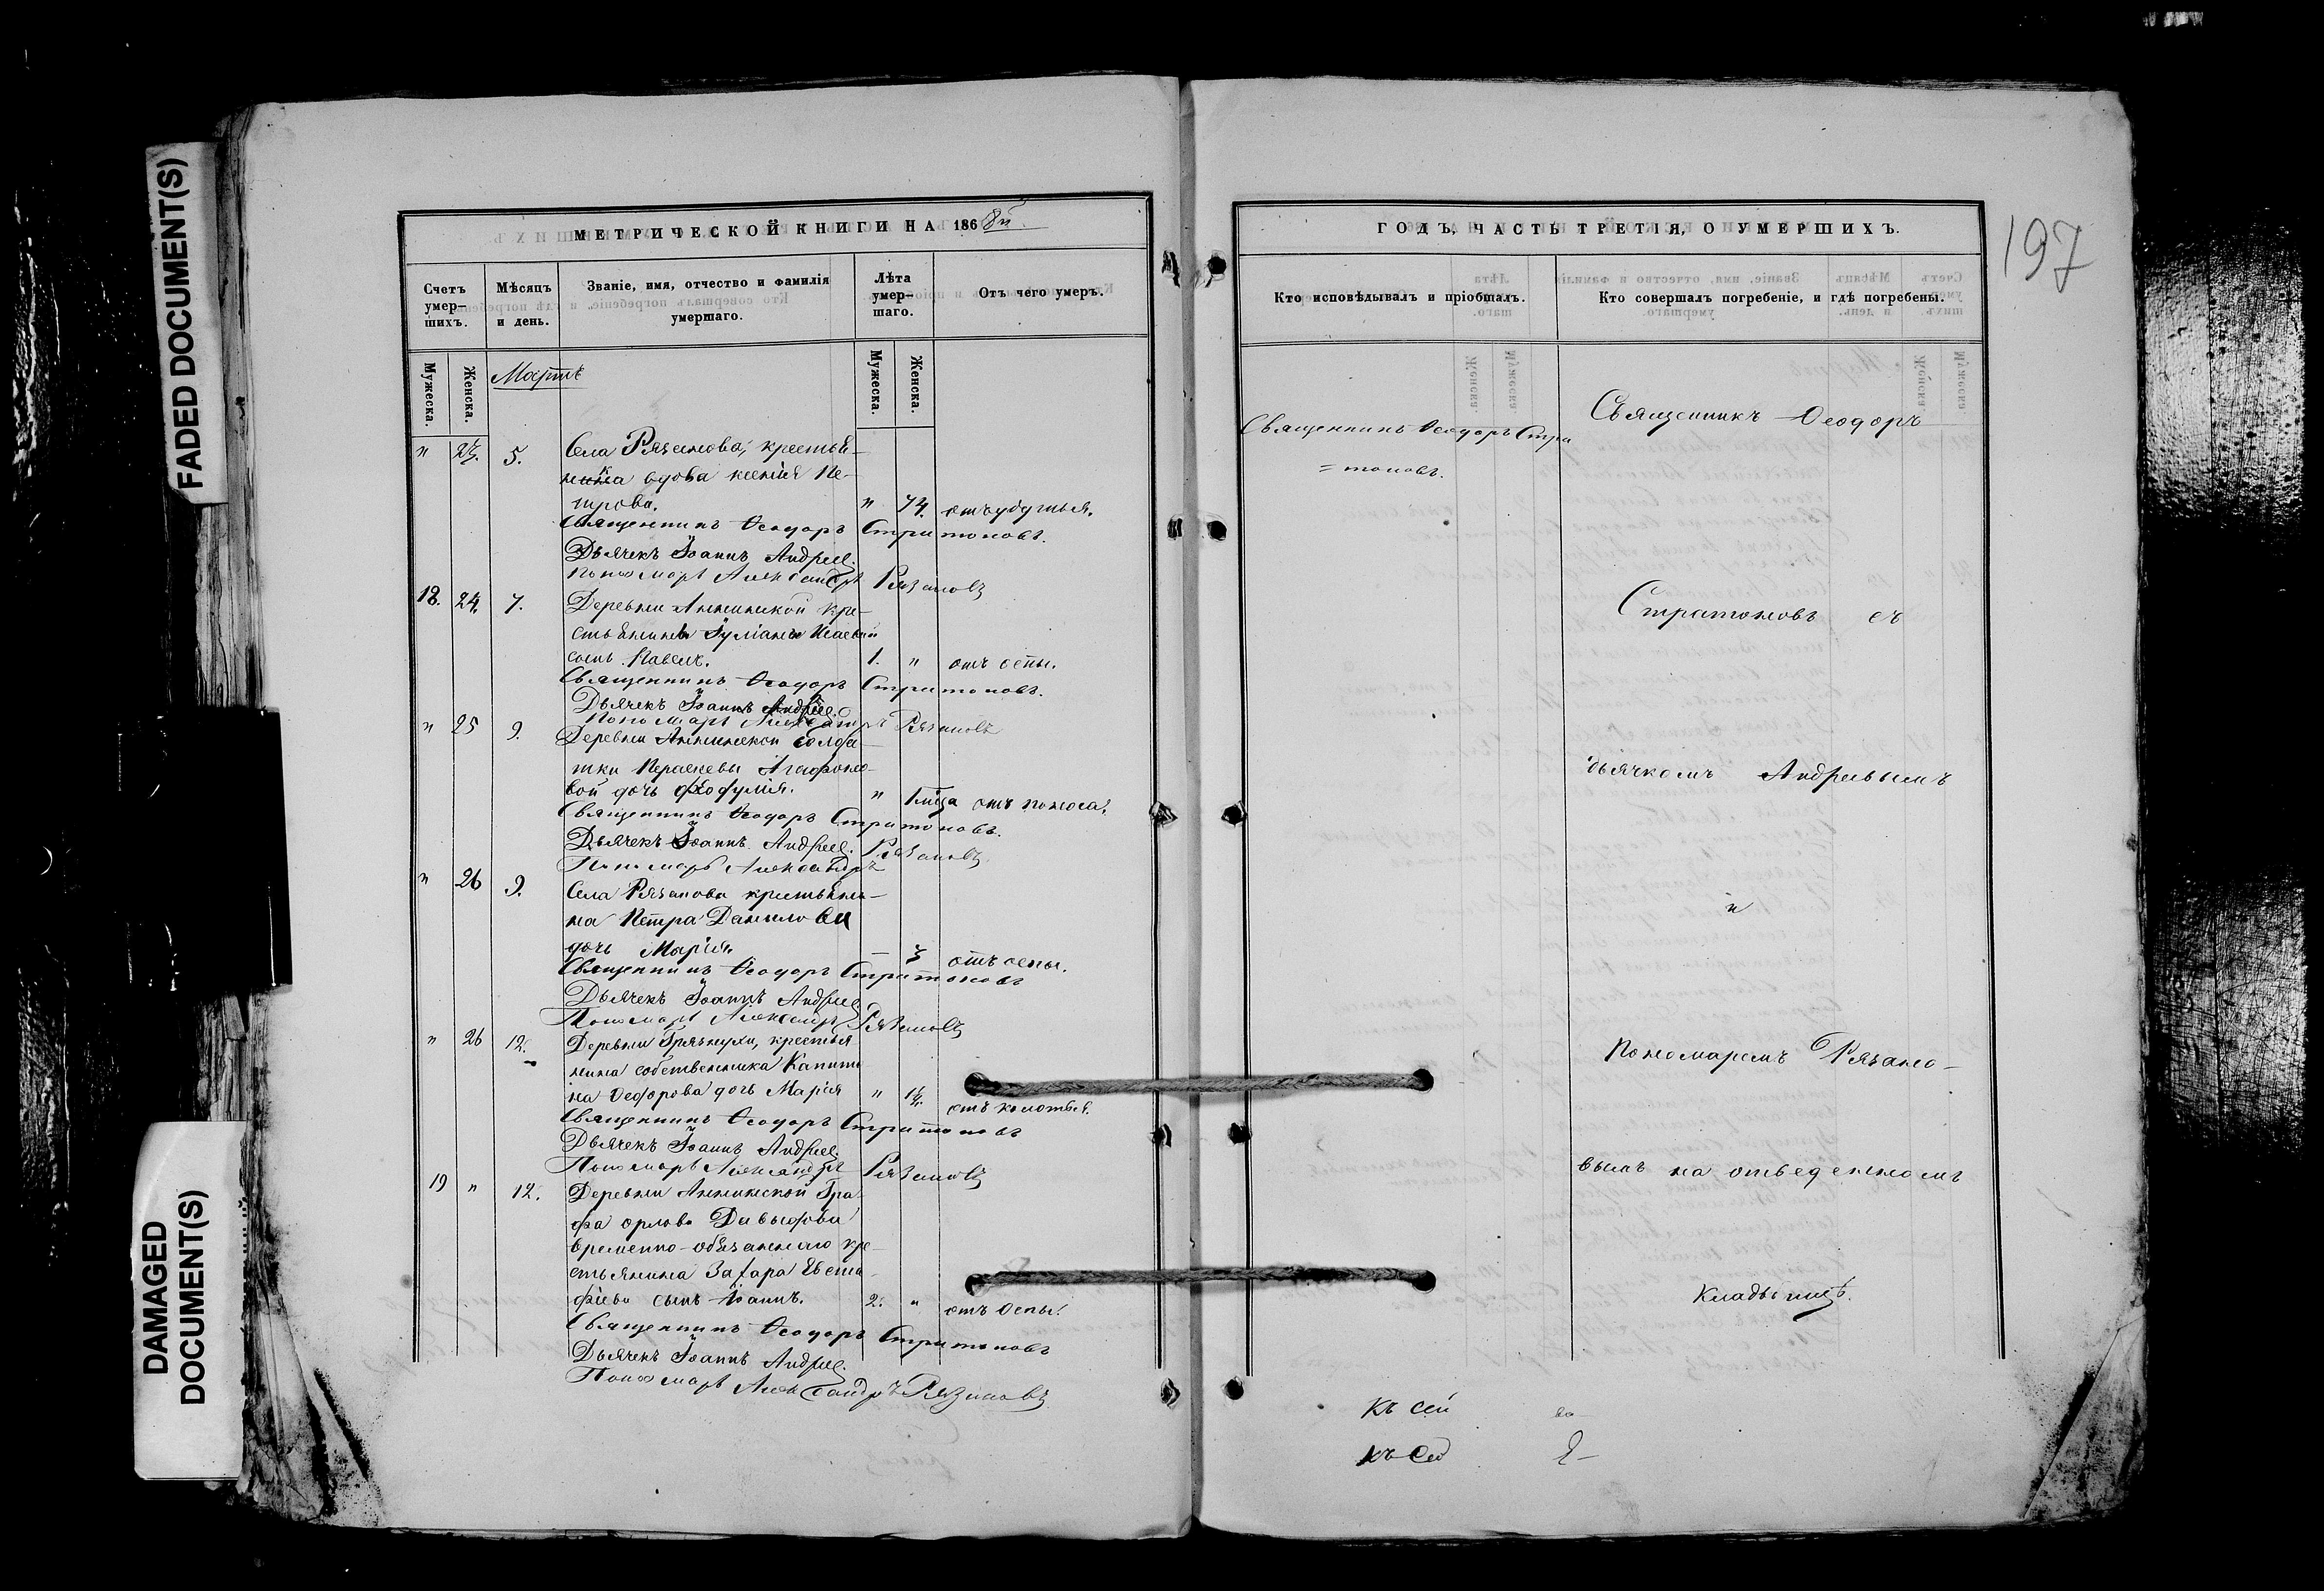 FADED DOCUMENT(S)
DAMAGED
DOCUMENT(S)
МЕТРИЧЕСКОЙ КНИГИ НА 1868й
Счетъ умер-шихъ.
Мѣсяцъ и день.
Званіе, имя, отчество и фамилія умершаго.
Лѣта умер-шаго.
Отъ чего умеръ.
Мужеска.
Женска.
Мужеска.
Женска.
Мартъ
" 5. Села Рязанова, крестья-
вдова Ксенія Пе-
трова. "
Священникъ Ѳеодоръ Стратоновъ.
Дьячекъ Іоаннъ Андреев.
Пономарь Александръ Рязановъ
18. 24. 7. Деревни Аннинской кре-
стьянина
сынъ Павелъ. 1. " отъ оспы.
Священникъ Ѳеодоръ Стратоновъ.
Дьячекъ Іоаннъ Андреев.
Пономарь Александръ Рязановъ
" 25 9. Деревни Аннинской солда-
тки Параскевы Агафоно-
вой дочь " отъ поноса.
Священникъ Ѳеодоръ Стратоновъ.
Дьячекъ Іоаннъ Андреев.
Пономарь Александръ Рязановъ
" 26 9. Села Рязанова крестьяни-
на Петра Данилова
дочь Марія. — 3 отъ оспы.
Священникъ Ѳеодоръ Стратоновъ
Дьячекъ Іоаннъ Андреев
Пономарь Александръ Рязановъ
" 26 12. Деревни Грязнухи, крестья
нина собственника Капито
на Ѳеодорова дочь Марія "
Священникъ Ѳеодоръ Стратоновъ
Дьячекъ Іоаннъ Андреев.
Пономарь Александръ Рязановъ
19 " 12. Деревни Аннинской Гра-
фа Орлова Давыдова
временно-обязаннаго кре-
стьянина Захара Евста-
фіева сынъ Іоаннъ. 2. " отъ оспы.
Священникъ Ѳеодоръ Стратоновъ
Дьячекъ Іоаннъ Андреев.
Пономарь Александръ Рязановъ
ГОДЪ, ЧАСТЬ ТРЕТІЯ, О УМЕРШИХЪ.
197
Кто исповѣдывалъ и пріобщалъ.
Кто совершалъ погребеніе, и гдѣ погребены.
Священникъ Ѳеодоръ Стра
=тоновъ.
Священникъ Ѳеодоръ
Стратоновъ съ
дьячкомъ Андреевымъ
и
Пономаремъ Рязано-
вымъ на отведенномъ
кладбищѣ.
Къ сей
къ сей